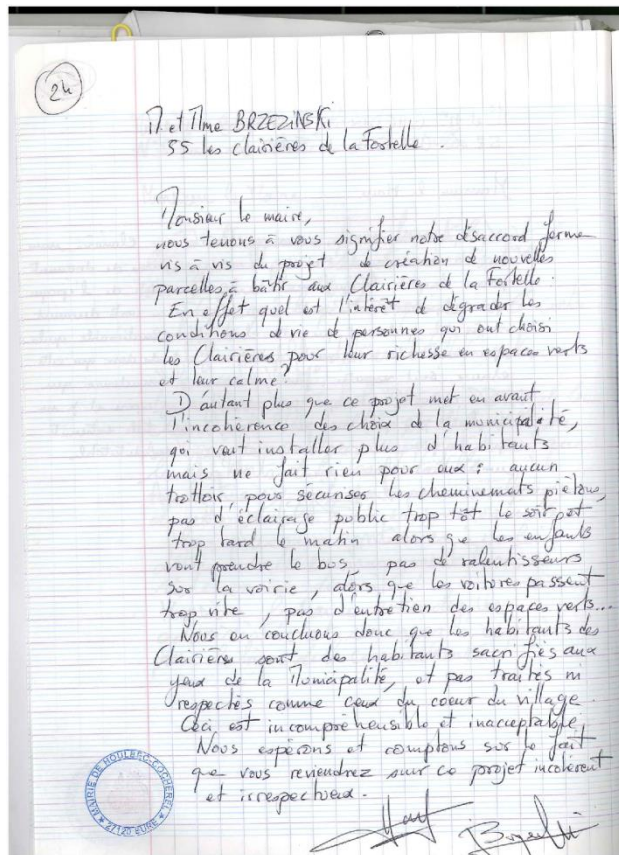 24
M et Mme BRZEZINSKI
55 les clairières de la Fortelle.
Monsieur le maire,
nous tenons à vous signifier notre désaccord ferme
vis à vis du projet de création de nouvelles
parcelles à bâtir aux Clairières de la Fortelle.
En effet quel est l'intérêt de dégrader les
conditions de vie de personnes qui ont choisi
les Clairières pour leur richesse en espaces verts
et leur calme?
D'autant plus que ce projet met en avant
l'incohérence des choix de la municipalité,
qui veut installer plus d'habitants
mais ne fait rien pour eux : aucun
trottoir pour sécuriser les cheminements piétons,
pas d'éclairage public trop tôt le soir et
trop tard le matin alors que les enfants
vont prendre le bus, pas de ralentisseurs
sur la voirie, alors que les voitures passent
trop vite, pas d'entretien des espaces verts...
Nous en concluons donc que les habitants des
Clairières sont des habitants sacrifiés aux
yeux de la Municipalité, et pas traités ni
respectés comme ceux du coeur du village.
Ceci est incompréhensible et inacceptable.
Nous espérons et comptons sur le fait
que vous reviendrez sur ce projet incohérent
et irrespectueux.
MAIRIE DE HOULBEC-COCHEREL
27120 EURE